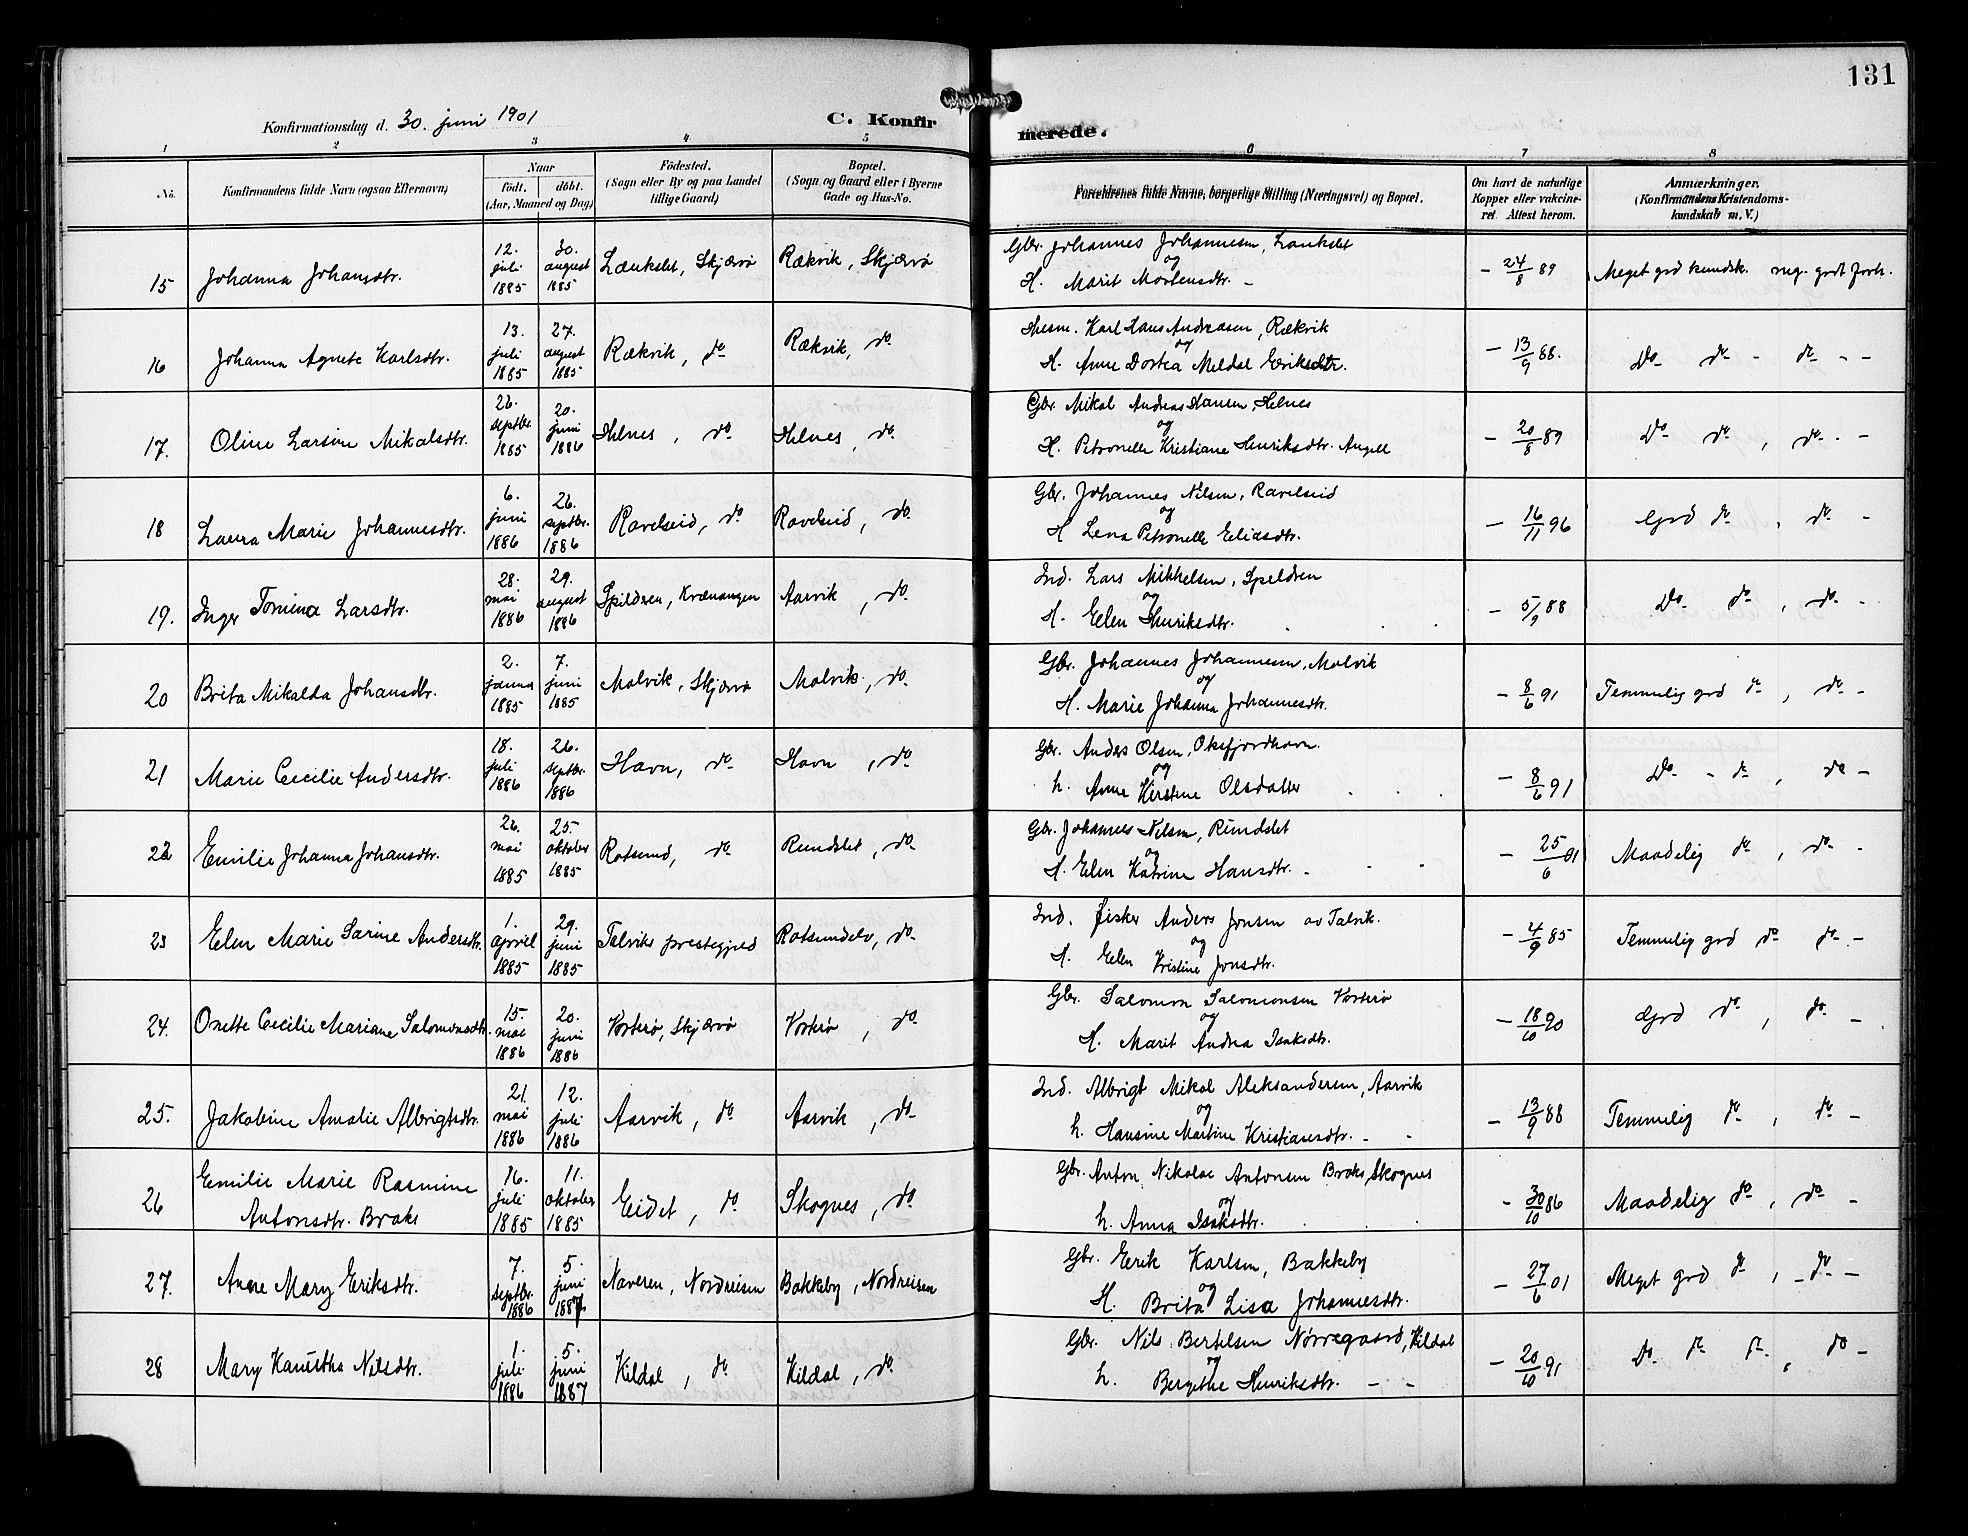 131
Konfirmationsdag d. 30. juni 1901
C. Konfirmerede.
1 2 3 4 5 6 7 8
No. | Konfirmandens fulde Navn (ogsaa Efternavn) | Naar födt. döbt. (Aar, Maaned og Dag) | Födested. (Sogn eller By og paa Landet tillige Gaard) | Bopæl. (Sogn og Gaard eller i Byerne Gade og Hus-No. | Forældrenes fulde Navne, borgerlige Stilling (Næringsvei) og Bopæl. | Om havt de naturlige Kopper eller vakcineret. Attest herom. | Anmærkninger. (Konfirmandens Kristendomskundskab m. V.)
15 | Johanna Johansdtr. | 12. juli 1885 | 30. august 1885 | Lankslet, Skjærvø | Rækvik, Skjærvø | Gbr. Johannes Johannesen, Lankslet og H. Marit Mortensdtr. - | - 24/8 89 | Meget god kundsk. meg. godt forh.
16 | Johanna Agnete Karlsdtr. | 13. juli 1885 | 27. august 1885 | Rækvik, do | Rækvik, do | Husm. Karl Hans Andreasen, Rækvik og H. Anne Dortea Meldal Eriksdtr. | - 13/9 88. | Do do - do - -
17. | Oline Larsine Mikalsdtr. | 26. septbr. 1885 | 20. juni 1886 | Helnes, do | Helnes, do | Gbr. Mikal Andreas Hansen, Helnes og H. Petronelle Kristiane Henriksdtr. Angell | - 20/8 89 | Do do, do. -
18 | Laura Marie Johannesdtr. | 6. juni 1886 | 26. septbr. 1886 | Ravelseid, do | Ravelseid, do | Gbr. Johannes Nilsen, Ravelseid og H Lena Petronelle Eliasdtr. | - 16/11 96 | God do, do -
19. | Inger Tomina Larsdtr. | 28. mai 1886 | 29. august 1886 | Spildren, Kvænangen | Aarvik, do | Ind. Lars Mikkelsen, Speldren og H. Elen Henriksdtr. | - 5/9 88 | Do do, do -
20 | Brita Mikalda Johansdtr. | 2. janua 1885 | 7. juni 1885 | Molvik, Skjærvø | Molvik, do | Gbr. Johannes Johannesen, Molvik og H. Marie Johanna Johannesdtr. | - 8/6 91 | Temmelig god do, do -
21 | Marie Cecilie Andersdtr. | 18. juli 1886 | 26. septbr. 1886 | Havn, do | Havn, do | Gbr. Anders Olsen, Oksfjordhavn og h. Anne Kirstine Olsdatter | - 8/6 91 | Do - do, do -
22 | Emilie Johanna Johansdtr. | 26. mai 1885 | 25. oktober 1885 | Rotsund, do | Rundslet, do | Gbr. Johannes Nilsen, Rundslet og H. Elen Katrine Hansdtr. - | - 25/6 01 | Maadelig do, do -
23 | Elen Marie Sarine Andersdtr. | 1. april 1885 | 29. juni 1885 | Talviks prestegjeld | Rotsundelv, do | Ind. fisker Anders Jonsen av Talvik. og H. Elen Kristine Jonsdtr. | - 4/9 85 | Temmelig god do do -
24. | Onette Cecilie Mariane Salomonsdtr. | 15. mai 1886 | 20. juni 1886 | Vorterø, Skjærvø | Vorterø, do | Gbr. Salomon Salomonsen Vorterø og H. Marit Andrea Isaksdtr. | - 18/10 90 | God do, do -
25. | Jakobine Amalie Albrigtsdtr. | 21. mai 1886 | 12. juli 1886 | Aarvik, do | Aarvik, do | Ind. Albrigt Mikal Aleksandersen, Aarvik og h. Hansine Martine Kristiansdtr. - | - 13/9 88 | Temmelig do, do -
26 | Emilie Marie Rasmine Antonsdtr. Braks | 16. juli 1885 | 11. oktober 1885 | Eidet, do | Skognes, do | Gbr. Anton Nikolai Antonsen Braks, Skognes og h. Anna Isaksdtr. | - 30/10 86 | Maadelig do, do -
27. | Anne Mary Eriksdtr. | 7. septbr. 1886 | 5. juni 1887 | Naveren, Nordreisen | Bakkeby, Nordreisen | Gbr. Erik Karlsen, Bakkeby og H. Brita Lisa Johannesdtr. | - 27/6 01 | Meget god do, - do -
28 | Mary Kanestha Nilsdtr. | 1. juli 1886 | 5. juni 1887 | Kildal, do | Kildal, do | Gbr. Nils Bertelsen Nørregaard, Kildal og h. Bergithe Henriksdtr. - - | - 20/10 91 | Do do do, do -